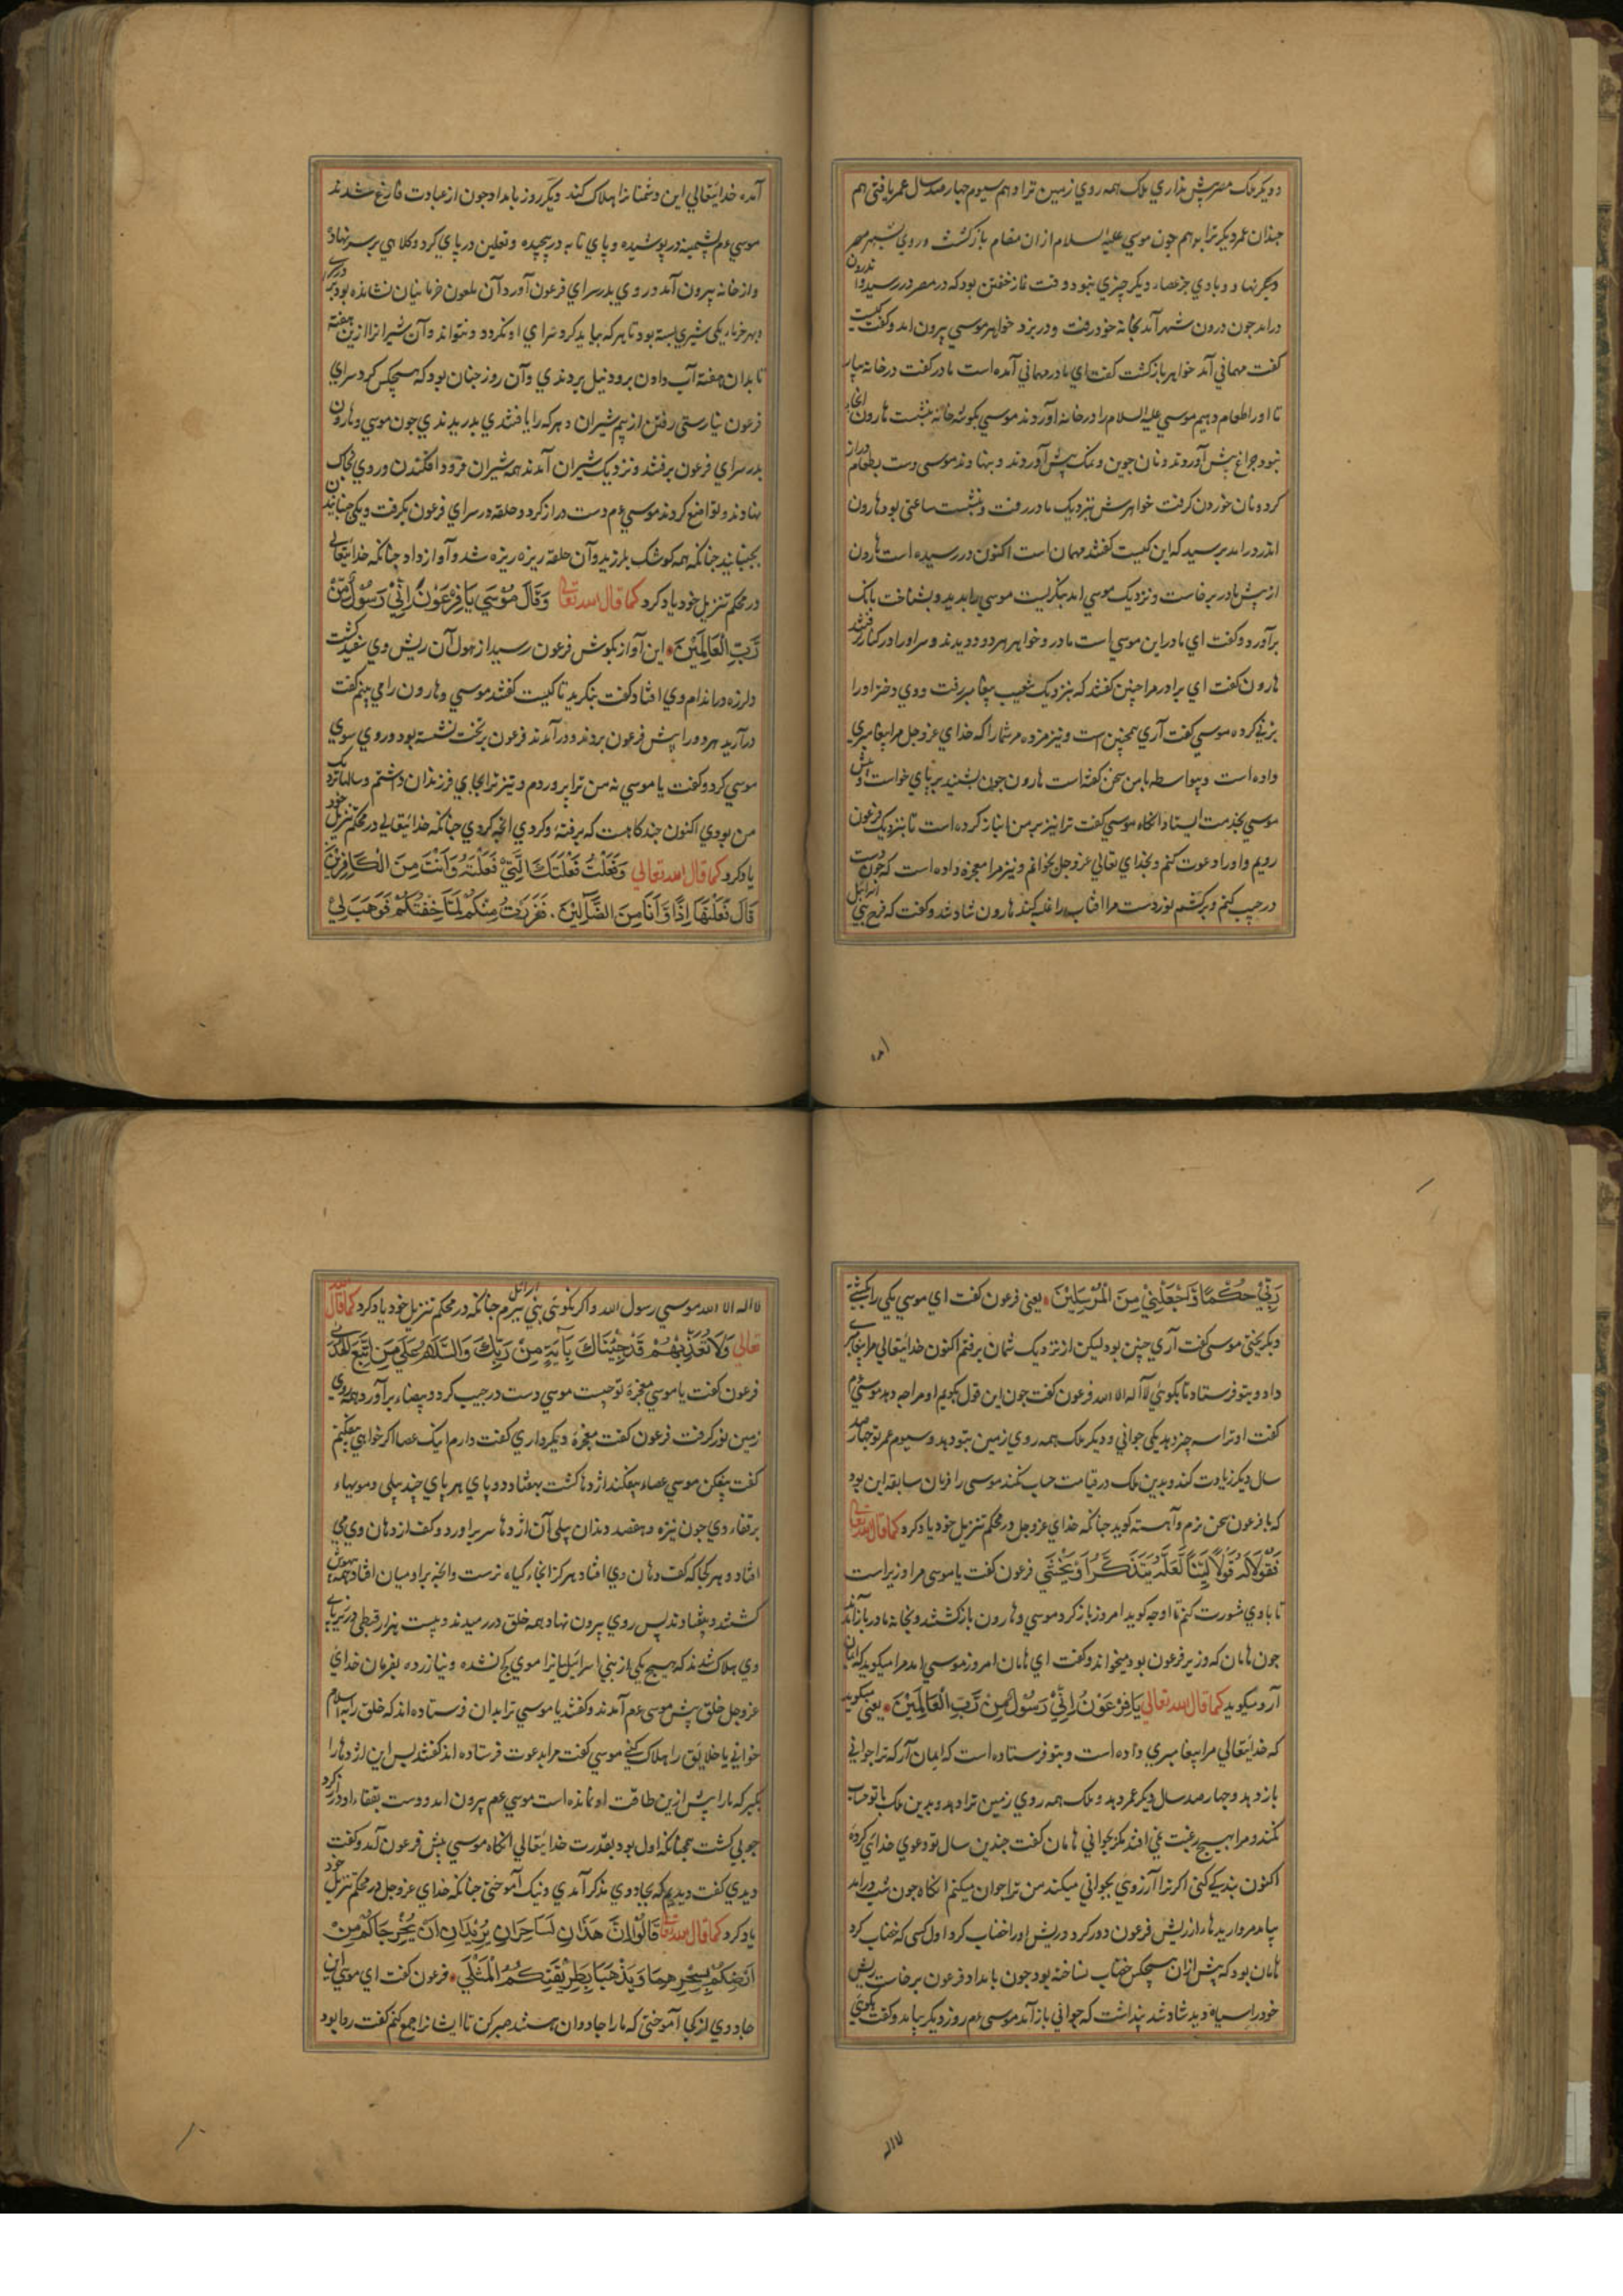 و دیگر ملک مصر پیش نداری ملک همه روی زمین ترا دهم سیوم چهار صد سال عمر یافتی هم
چندان عمر دیگر ترا بدهم چون موسی علیه السلام ازان مقام بازگشت و روی بشهر مصر
نهاد و با وی جز عصا دیگر چیزی نبود و وقت نماز خفتن بود که در مصر در رسید و اندرون
درامد چون درون شهر آمد بخانه خود رفت و در بزد خواهر موسی بیرون امد و گفت کیست
گفت مهمانی آمد خواهر بازگشت گفت ای مادر مهمانی آمده است مادر گفت در خانه بیار
تا او را طعام دهیم موسی علیه السلام را در خانه آوردند موسی بگوشه خانه بنشست هارون انجا
نبود چراغ پیش آوردند و نان جوین و نمک پیش آوردند و بنهادند موسی دست بطعام دراز
کرد و نان خوردن گرفت خواهرش نزدیک مادر رفت و بنشست ساعتی بود هارون
اندر درامد پرسید که این کیست گفتند مهمان است اکنون در رسیده است هارون
از پیش مادر برخاست و نزدیک موسی امد بنگریست موسی را بدید و بشناخت بانک
برآورد و گفت ای مادر این موسی است مادر و خواهر هر دو دویدند و سر او را در کنار گرفتند
هارون گفت ای برادر مرا چنین گفتند که بنزدیک شعیب پیغامبر رفت و وی دختر او را
بزنی کرده موسی گفت آری همچنین است و نیز مزده مر شمارا که خدای عز و جل مرا پیغامبری
داده است و بیواسطه با من سخن گفته است هارون چون بشنید بر پای خواست و پیش
موسی بخدمت ایستاد انکاه موسی گفت ترا نیز بر من انباز کرده است تا بنزدیک فرعون
رویم و او را دعوت کنم و بخدای تعالی عز و جل بخوانم و نیز مرا معجزه داده است که چون دست
در جیب کنم و برکشم نور دست مرا افتاب را غلبه کند هارون شاد شد و گفت که فرج بنی اسرائیل
امده
آمده خدایتعالی این دشمنانرا هلاک کند دیگر روز بامداد چون از عبادت فارغ شدند
موسی عم پشمینه در پوشیده و پای تابه در پیچیده و نعلین در پای کرد و کلاهی بر سر نهاد
و از خانه بیرون آمد و روی بدر سرای فرعون آورد آن ملعون خرمابنان نشانده بود بر در سرای
و بهر خرما یکی شیری بسته بود تا هر که بیاید کرد سرای او نگردد و نتواند و آن شیرانرا ازین هفته
تا بدان هفته آب دادن برود نیل بردندی وآن روز چنان بود که هیچکس گرد سرای
فرعون نیارستی رفتن از بیم شیران و هر که را یافتندی بدریدندی چون موسی و هارون
بدر سرای فرعون برفتند و نزدیک شیران آمدند همه شیران فرود افکندن و روی بخاک
بنهادند و تواضع کردند موسی عم دست دراز کرد و حلقه در سرای فرعون بگرفت و یکی جنبانیدن
بجنبانید چنانکه همه کوشک بلرزید وآن حلقه ریزه ریزه شد و آواز داد چنانکه خدایتعالی
در محکم تنزیل خود یاد کرد کما قال الله تعالی وَقَالَ مُوسَی یَا فِرْعَوْنُ اِنِّی رَسُولٌ مِّنْ
رَّبِّ الْعَالَمِیْنَ این آواز بگوش فرعون رسید از هول آن ریش وی سفید گشت
و لرزه در اندام وی افتاد گفت بنگرید تا کیست گفتند موسی و هارون را می بینم گفت
درآرید هر دو را پیش فرعون بردند و درآمدند فرعون بر تخت نشسته بود و روی سوی
موسی کرد و گفت یا موسی نه من ترا پروردم و نیز ترا بجای فرزندان داشتم و سالها نزدیک
من بودی اکنون چند کاهست که برفتۀ و کردی انچه کردی چنانکه خدایتعالی در محکم تنزیل خود
یاد کرد کما قال الله تعالی وَفَعَلْتَ فَعْلَتَكَ الَّتِیْ فَعَلْتَ وَاَنْتَ مِنَ الْكَافِرِیْنَ
قَالَ فَعَلْتُهَا اِذًا وَّاَنَا مِنَ الضَّآلِّیْنَ . فَفَرَرْتُ مِنْكُمْ لَمَّا خِفْتُكُمْ فَوَهَبَ لِیْ
رَبِّیْ حُكْمًا وَّجَعَلَنِیْ مِنَ الْمُرْسَلِیْنَ یعنی فرعون گفت ای موسی یکی را بکشتی
و بگریختی موسی گفت آری چنین بود لیکن از نزدیک شمایان برفتم اکنون خدایتعالی مرا پیغامبری
داد و بتو فرستاد تا بگوئی لا آله الا الله فرعون گفت چون این قول بگویم او مرا چه دهد موسی عم
گفت او ترا سه چیز دهد یکی جوانی و دیگر ملک همه روی زمین بتو دهد و سیوم عمر تو چهار صد
سال دیگر زیادت کند و بدین ملک در قیامت حساب نکند موسی را فرمان سابقه این بود
که با فرعون سخن نرم و آهسته گوید چنانکه خدای عز و جل در محکم تنزیل خود یاد کرد کما قال الله تعالی
فَقُوْلَا لَهُ قَوْلًا لَّیِّنًا لَّعَلَّهُ یَتَذَكَّرُ اَوْ یَخْشَی فرعون گفت یا موسی مرا وزیر است
تا با وی مشورت کنم تا او چه گوید امروز باز گرد موسی و هارون بازگشتند و بخانه مادر باز آمدند
چون هامان که وزیر فرعون بود بیخواند و گفت ای هامان امروز موسی امد مرا میگوید که ایمان
آر و میگوید کما قال الله تعالی یَا فِرْعَوْنُ اِنِّیْ رَسُوْلٌ مِّنْ رَّبِّ الْعَالَمِیْنَ یعنی میگوید
که خدایتعالی مرا پیغامبری داده است و بتو فرستاده است که ایمان آر که ترا جوانی
باز دهد و چهار صد سال دیگر عمر دهد و ملک همه روی زمین ترا دهد و بدین ملک با تو حساب
نکند و مرا هیچ رغبت نمی افتد مگر بجوانی هامان گفت چندین سال تو دعوی خدائی کردۀ
اکنون بندگی کنی اگر ترا آرزوی بجوانی میکند من ترا جوان میکنم انکاه چون شب درامد
بیامد مرواریدها از ریش فرعون دور کرد و ریش او را خضاب کرد اول کسی که خضاب کرد
هامان بود که پیش ازان هیچکس خضاب نساخته بود چون بامداد فرعون برخاست ریش
خود را سیاه دید شاد شد پنداشت که جوانی باز آمد موسی عم روز دیگر بیامد و گفت بگوئی
لا اله
لا اله الا الله موسی رسول الله و اگر نگوئی بنی اسرائیل ببرم چنانکه در محکم تنزیل خود یاد کرد کما قال الله
تعالی وَلَا تُعَذِّبْهُمْ قَدْ جِئْنَاكَ بِآیَةٍ مِنْ رَبِّكَ وَالسَّلَامُ عَلَی مَنِ اتَّبَعَ الْهُدَی
فرعون گفت یا موسی معجزۀ تو چیست موسی دست در جیب کرد و بیضاء برآورد همه روی
زمین نور گرفت فرعون گفت معجزۀ دیگر داری گفت دارم اینک عصا اگر خواهی بیفکنم
گفت بیفکن موسی عصاء بیفکند اژدها گشت بهفتاد دو پای هر پای چند پیلی و مویهاء
بر قفاء وی چون نیزه و هفصد دندان پیلی آن اژدها سر براورد و کف از دهان وی می
افتاد و هر کجا که کف دهان وی افتاد هرگز انجا گیاه نرست وانچه بر ادمیان افتاد همه بیهوش
گشتند و بیفتادند پس روی بیرون نهاد و همه خلق در رمیدند و بیست هزار قبطی در زیر پای
وی هلاک شدند که هیچ یکی از بنی اسرائیلیانرا موی کج نشده و نیازرده بفرمان خدای
عز و جل خلق پیش موسی عم آمدند و گفتند یا موسی ترا بدان فرستاده اند که خلق را به اسلام
خوانی یا خلایق را هلاک کنی موسی گفت مرا بدعوت فرستاده اند گفتند پس این اژدها را
بگیر که ما را بیش ازین طاقت او نمانده است موسی عم بیرون امد و دست بقفاء او دراز کرد
چوبی گشت همچنانکه اول بود بقدرت خدایتعالی انکاه موسی پیش فرعون آمد و گفت
دیدی گفت دیدیم که بجادوی مذکر آمدی و نیک آموختی چنانکه خدای عز و جل در محکم تنزیل خود
یاد کرد کما قال الله تعالی قَالُوْا اِنَّ هَذَانِ لَسَاحِرَانِ یُرِیْدَانِ اَنْ یُخْرِجَاكُمْ مِنْ
اَرْضِكُمْ بِسِحْرِهِمَا وَیَذْهَبَا بِطَرِیْقَتِكُمُ الْمُثْلَی فرعون گفت ای موسی این
جادوی از کجا آموختی که ما را جادوان هستند صبر کن تا ایشانرا جمع کنم گفت روا بود